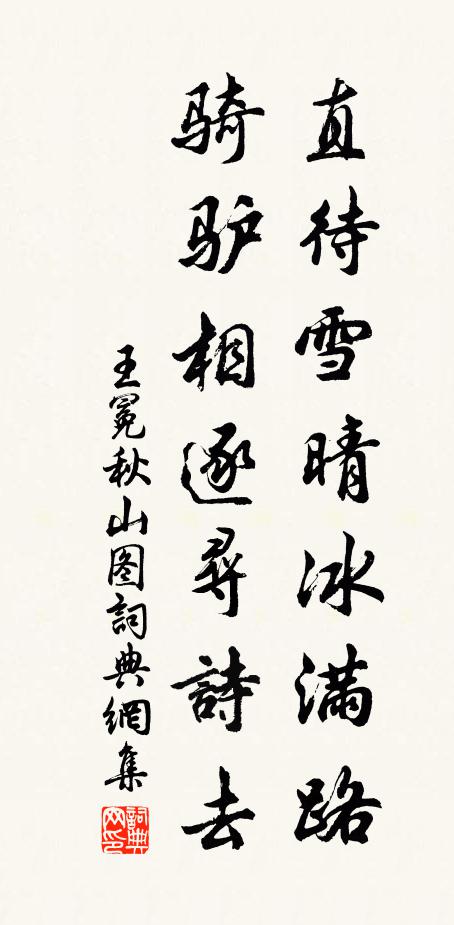 直待雪晴冰满路
骑驴相逐尋詩去
王冕秋山图詞典網集
詞典网印